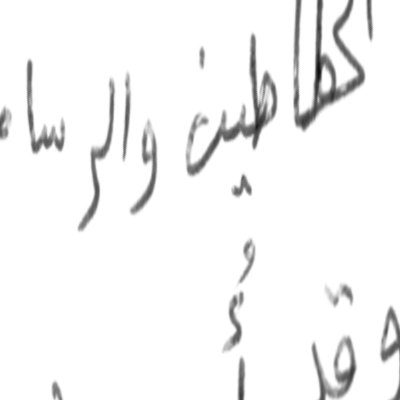 الخطاطين والرسا
وقد أُ